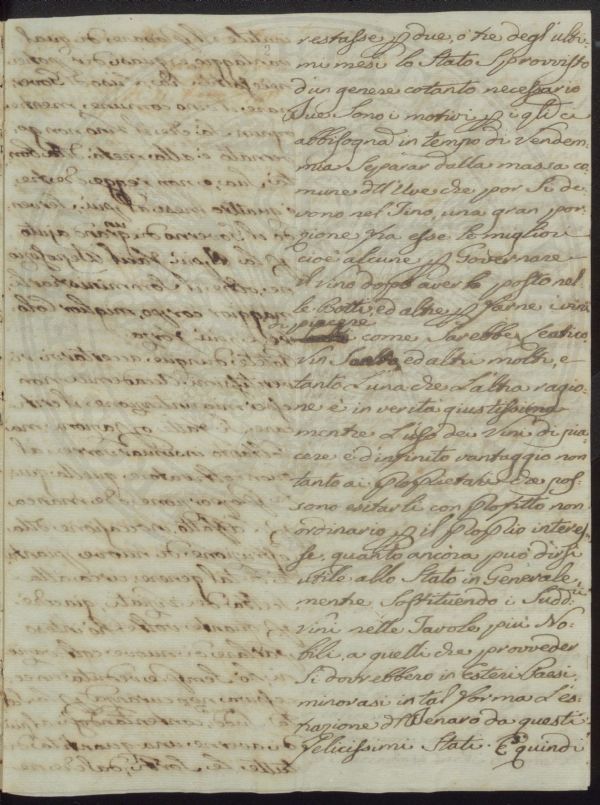 restasse p due, o tre degl'ulti-
mi mesi lo Stato sprovvisto
d'un genere cotanto necessario
Due sono i motivi p i qli ci
abbisogna in tempo di Vendem-
mia Separar dalla massa co-
mune dll'Uve che por si de-
vono nel Tino, una gran por-
zione fra esse le migliori
cioè alcune p Governare
il vino doppo averlo posto nel-
le Botti, ed altre p farne i vini
di piacere
come Sarebbe Leatico,
vin Santo ed altri molti, e
tanto l'una che l'altra ragio-
ne è in verità giustissima
mentre l'uso dei Vini di pia-
cere è d'infinito vantaggio non
tanto ai Proprietari che pos-
sono esitarli con profitto non
ordinario p il proprio interes-
se, quanto ancora può dirsi
utile allo Stato in Generale,
mentre Sostituendo i Sudd.i
vini nelle Tavole più No-
bili, a quelli che provveder
si dovrebbero in Esteri Paesi,
minorasi in tal forma l'es-
trazione dll Denaro da questi
Felicissimi Stati. E quindi